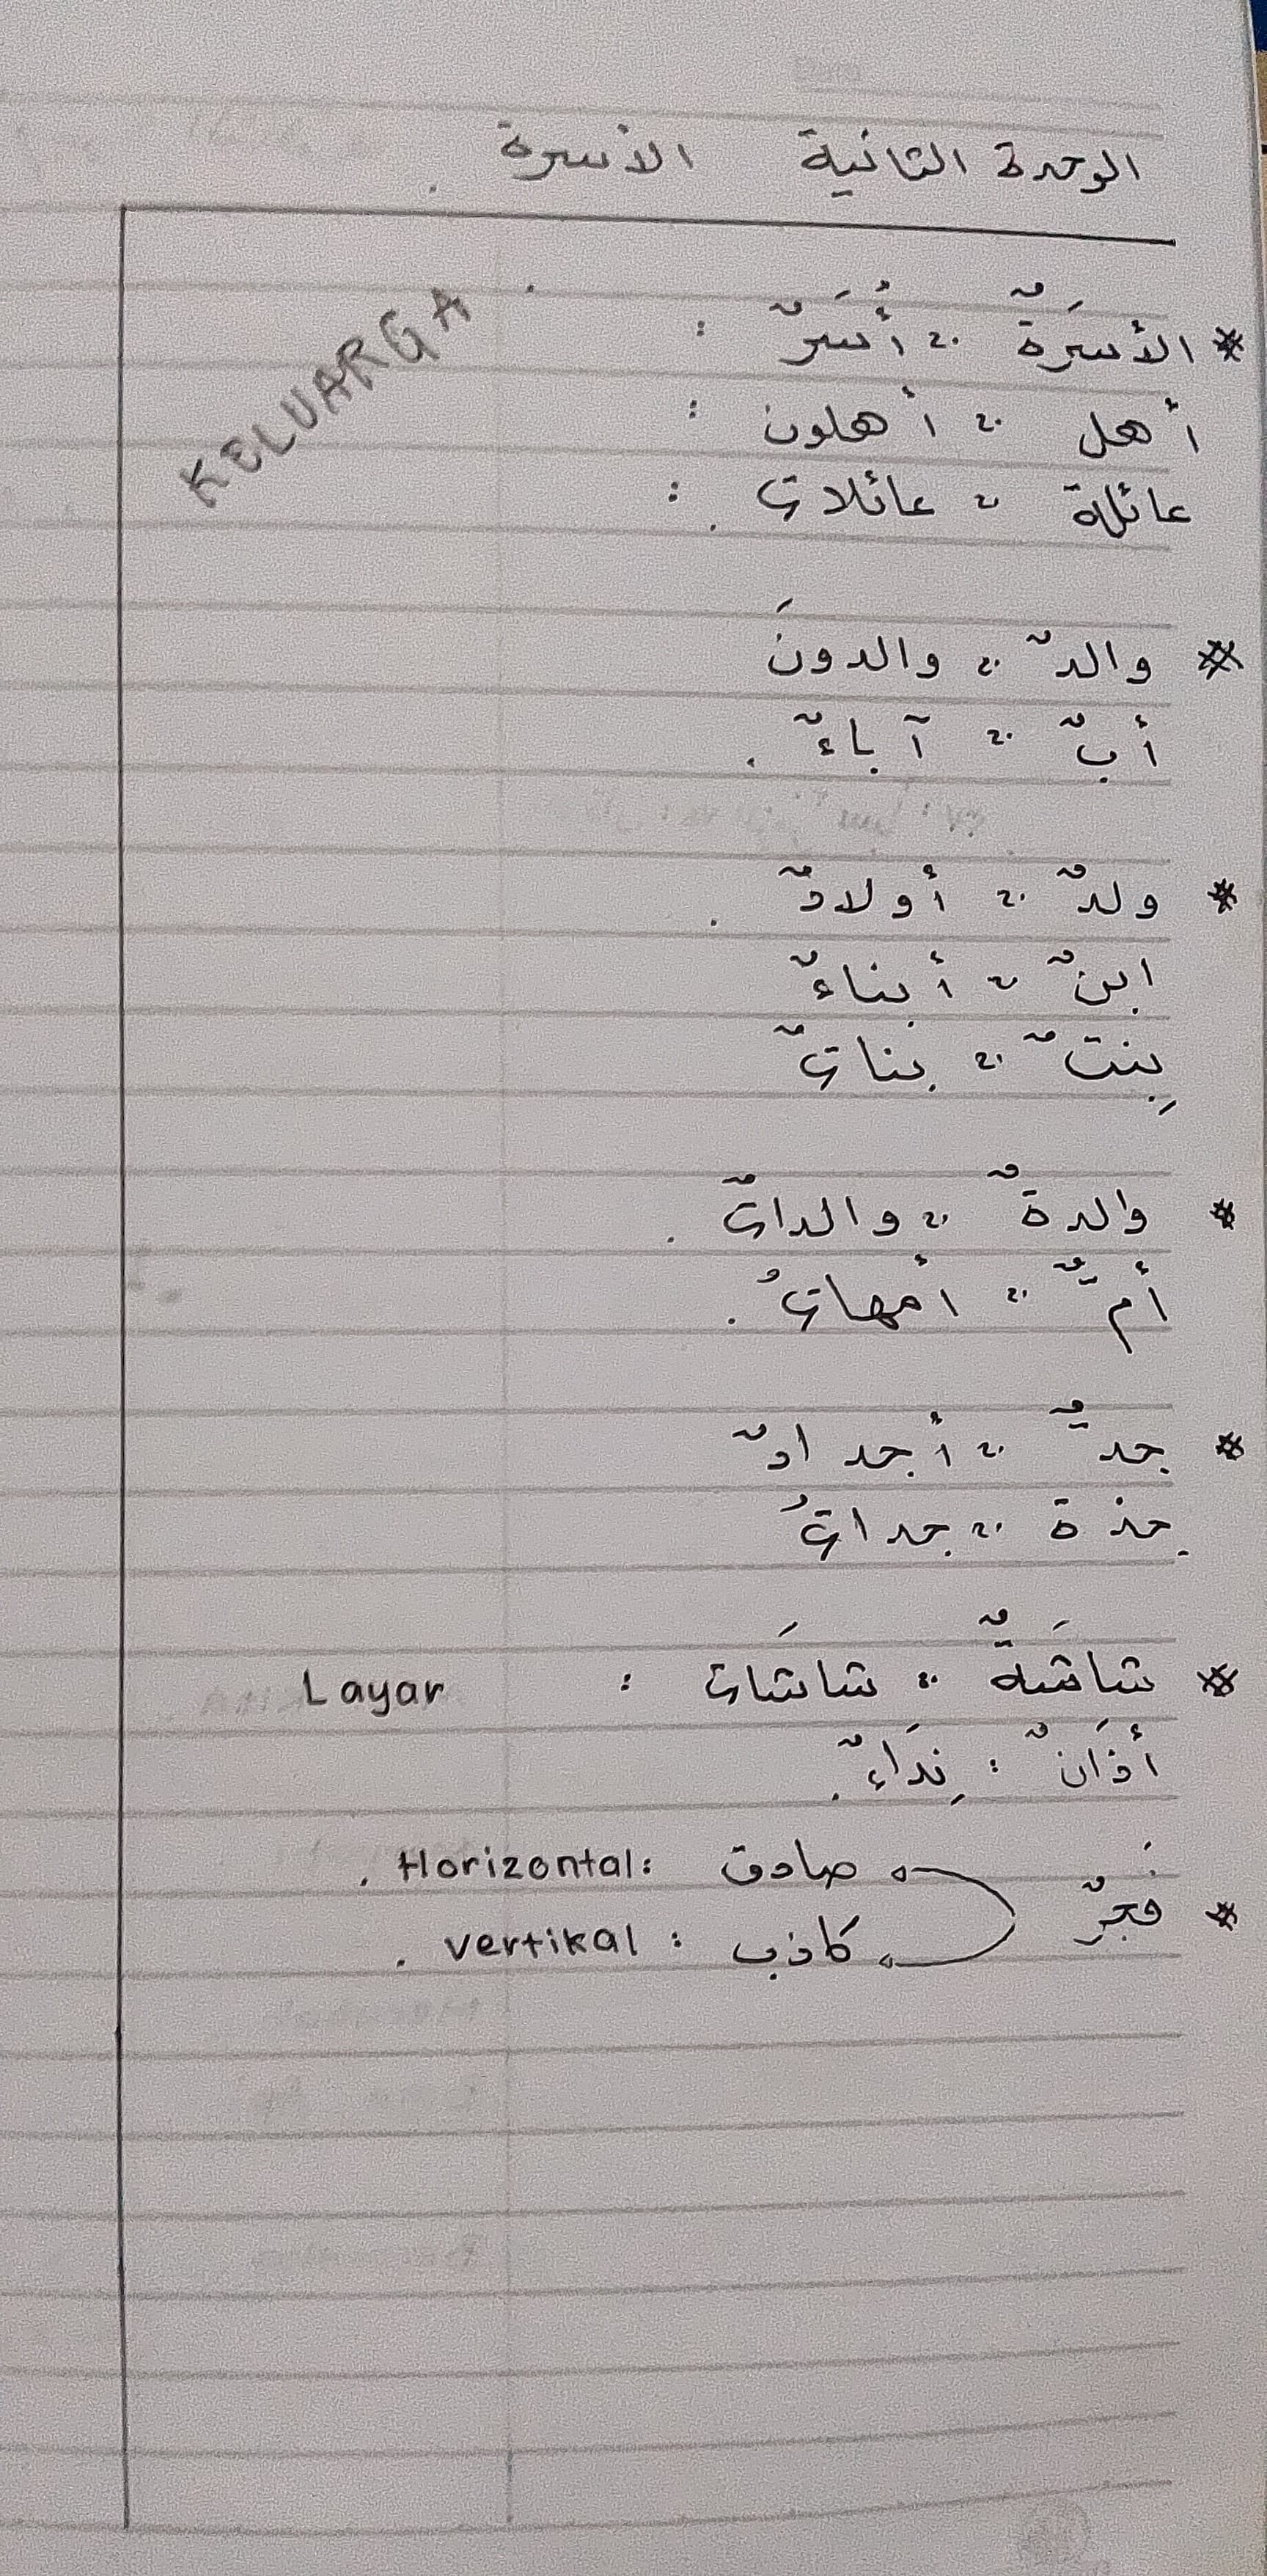 الوحدة الثانية الأسرة
* الأسَرةٌ ج أُسَرٌ :
أهل ج أهلون :
KELUARGA
عائلة ج عائلات :
* والدٌ ج والدونَ
أبٌ ج آباءٌ .
* ولدٌ ج أولادٌ .
ابنٌ ج أبناءٌ
بِنتٌ ج بناتٌ
* والدةٌ ج والداتٌ .
أمٌّ ج أمهاتُ .
* جدٌّ ج أجدادٌ
جذة ج جداتُ
* شاشَةٌ ج شاشَات : Layar
أذَانٌ : نِدَاءٌ .
* فجرٌ صادق : Horizontal .
كاذب : vertikal .